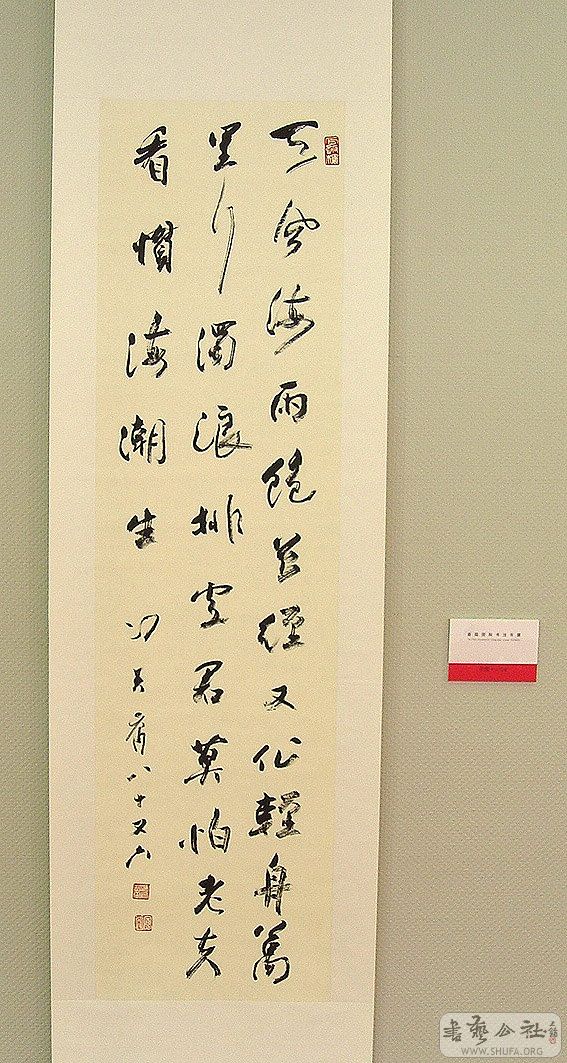 天風海雨飽曾經又作輕舟萬
里行濁浪排空君莫怕老夫
看慣海潮生 冯其庸八十又六
書藝公社
WWW.SHUFA.ORG